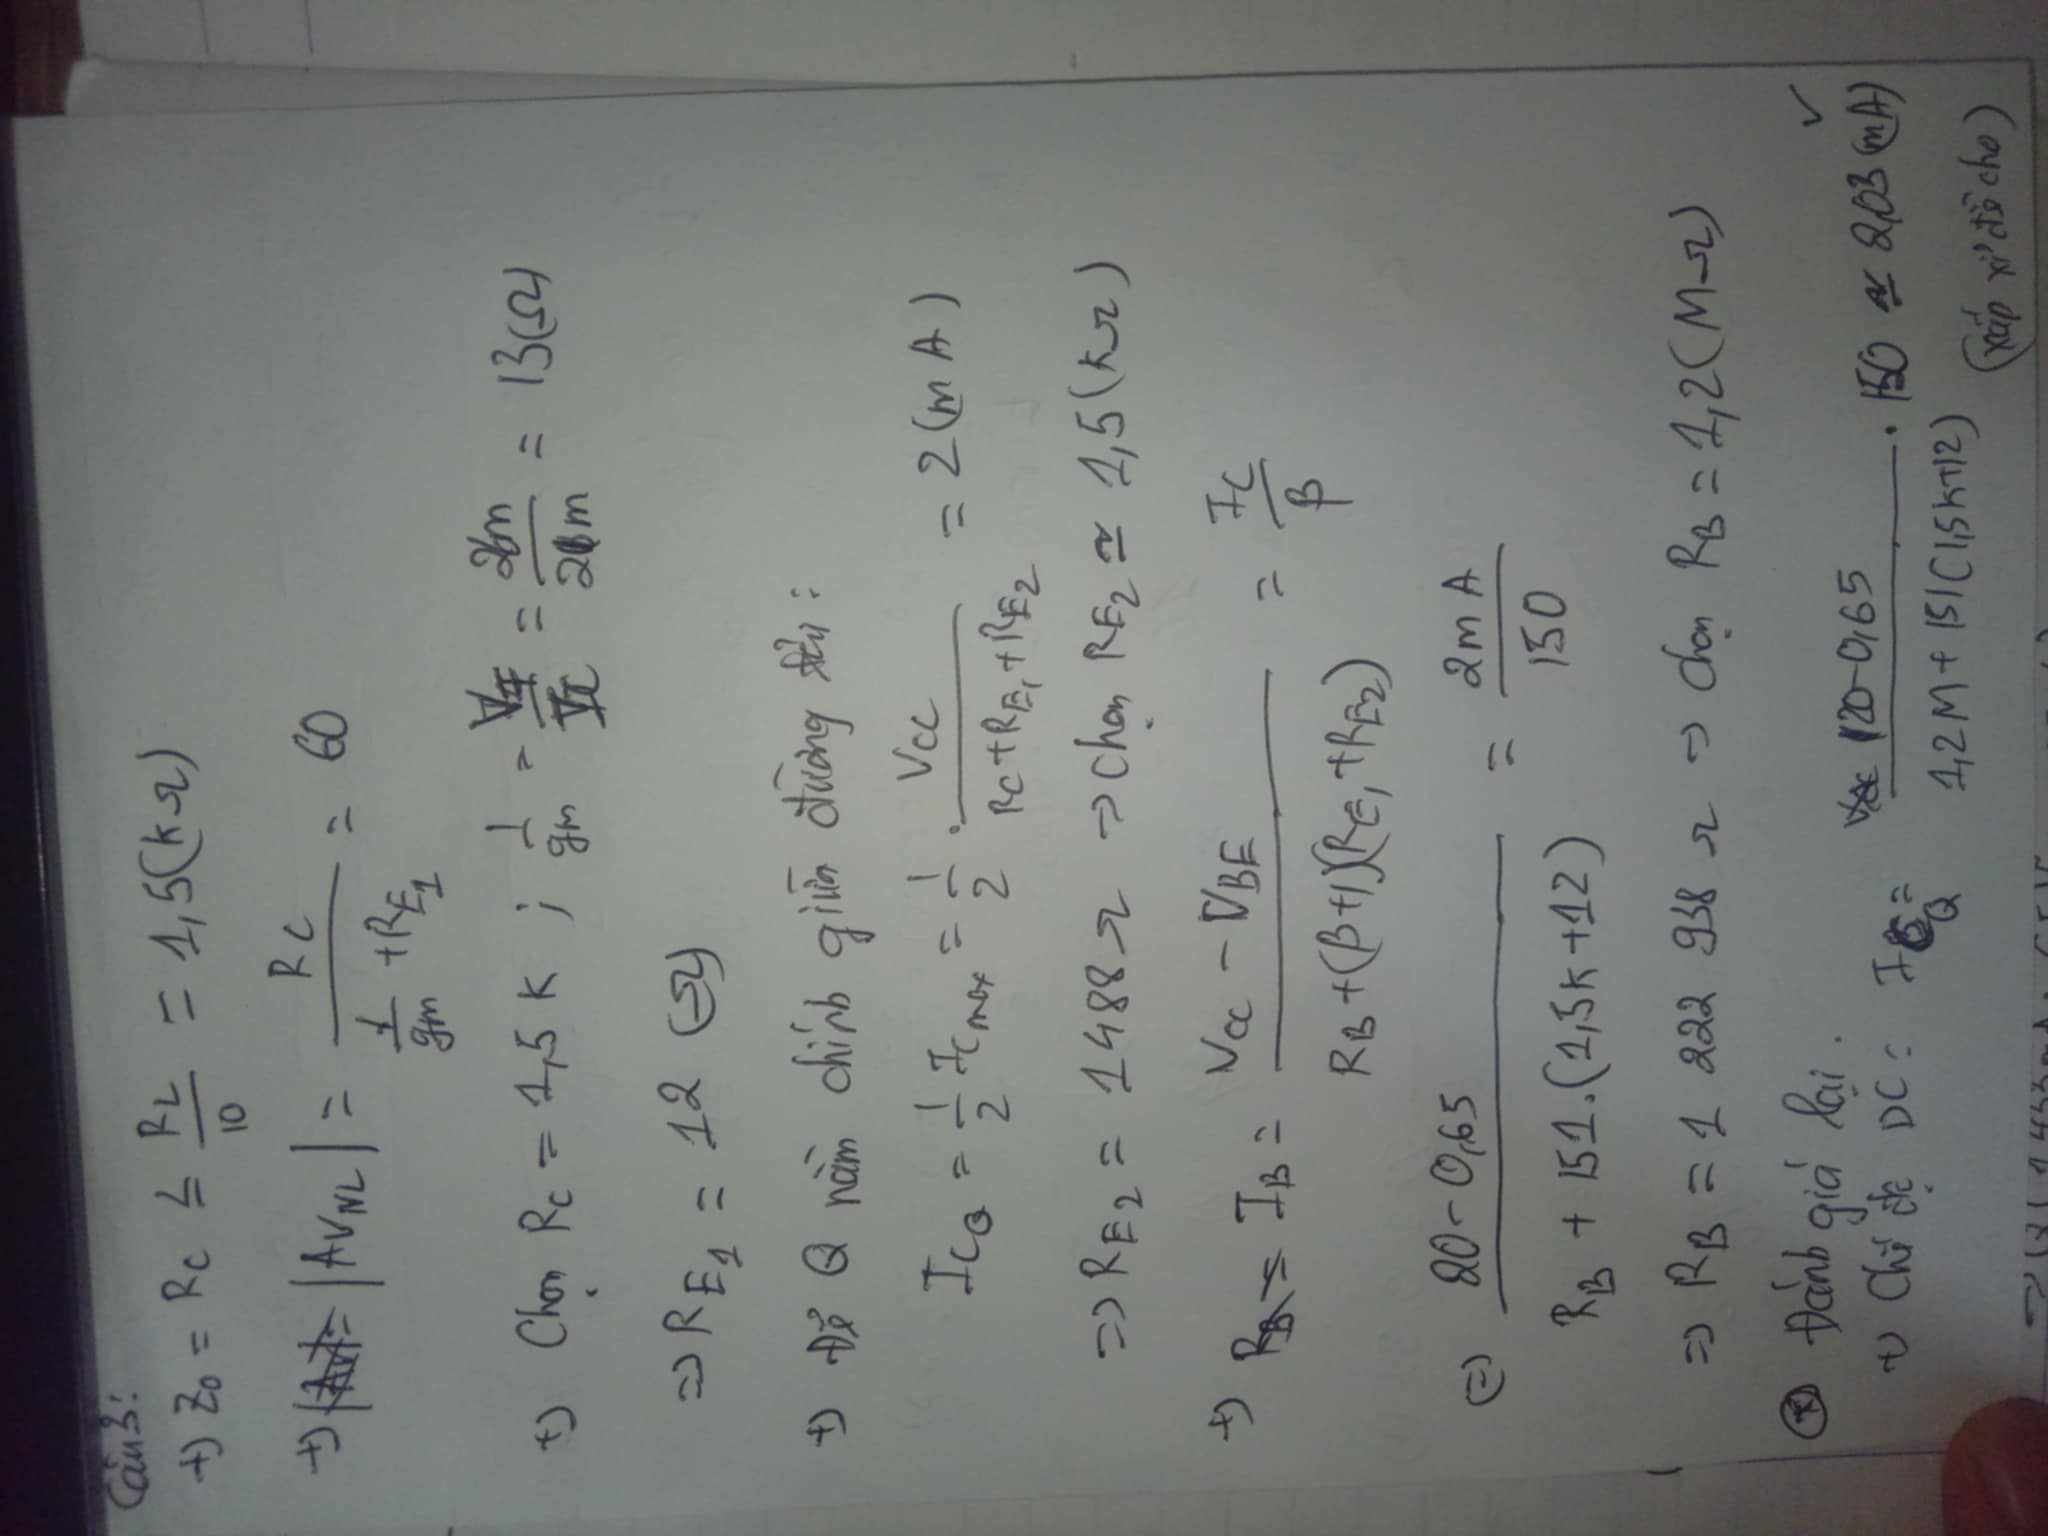 Câu 3:
+) Z₀ = R_C ≤ R_L / 10 = 1,5(kΩ)
+) |A_VNL| = R_C / (1/gm + R_E1) = 60
+) Chọn R_C = 1,5 K ; 1/gm = V_T / I_C = 26m / 2m = 13(Ω)
=> R_E1 = 12 (Ω)
+) Để Q nằm chính giữa đường tải :
I_CQ = 1/2 I_Cmax = 1/2 . V_CC / (R_C + R_E1 + R_E2) = 2(mA)
=> R_E2 = 1488Ω → chọn R_E2 ≃ 1,5(kΩ)
+) I_B = (V_CC - V_BE) / (R_B + (β+1)(R_E1 + R_E2)) = I_C / β
(=) (20 - 0,65) / (R_B + 151.(1,5K + 12)) = 2mA / 150
=> R_B = 1 222 938 Ω → chọn R_B = 1,2(MΩ)
(*) Đánh giá lại.
+) Chế độ DC : I_CQ = (20 - 0,65) / (1,2M + 151(1,5K+12)) . 150 ≃ 2,03(mA) ✓
(xấp xỉ đề cho)